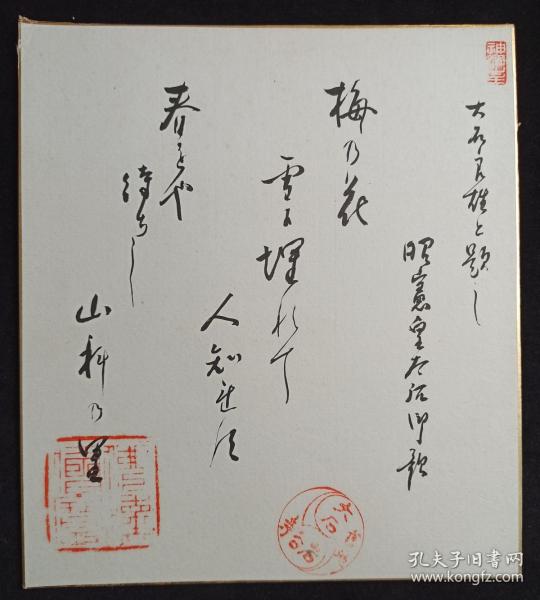 大石良雄と題し
昭憲皇太后御歌
梅乃花
雪に埋れて
人知連須
春をや
待ちし
山科乃里
孔夫子旧书网
www.kongfz.com